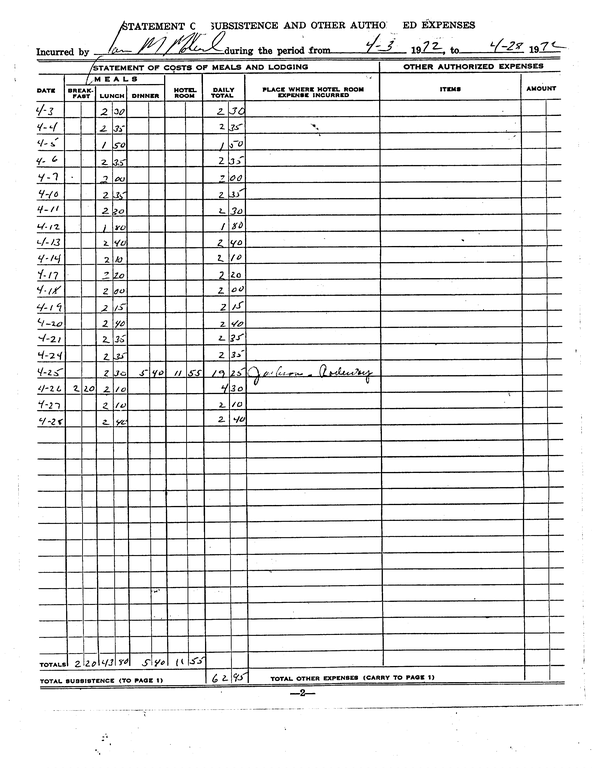 STATEMENT O SUBSISTENCE AND OTHER AUTHO ED EXPENSES
Incurred by during the period from 4-3 1972, to 4-28 1972
STATEMENT OF COSTS OF MEALS AND LODGING OTHER AUTHORIZED EXPENSES
MEALS
DATE BREAK-FAST LUNCH DINNER HOTEL ROOM DAILY TOTAL PLACE WHERE HOTEL ROOM EXPENSE INCURRED ITEMS AMOUNT
4-3 2 30 2 30
4-4 2 35 2 35
4-5 1 50 1 50
4-6 2 35 2 35
4-7 2 00 2 00
4-10 2 35 2 35
4-11 2 30 2 30
4-12 1 80 1 80
4-13 2 40 2 40
4-14 2 10 2 10
4-17 2 20 2 20
4-18 2 00 2 00
4-19 2 15 2 15
4-20 2 40 2 40
4-21 2 35 2 35
4-24 2 35 2 35
4-25 2 30 5 40 11 55 19 25 Jackson - Rodeway
4-26 2 20 2 10 4 30
4-27 2 10 2 10
4-28 2 40 2 40
TOTALS 2 20 43 80 5 40 11 55
TOTAL SUBSISTENCE (TO PAGE 1) 62 95 TOTAL OTHER EXPENSES (CARRY TO PAGE 1)
—2—